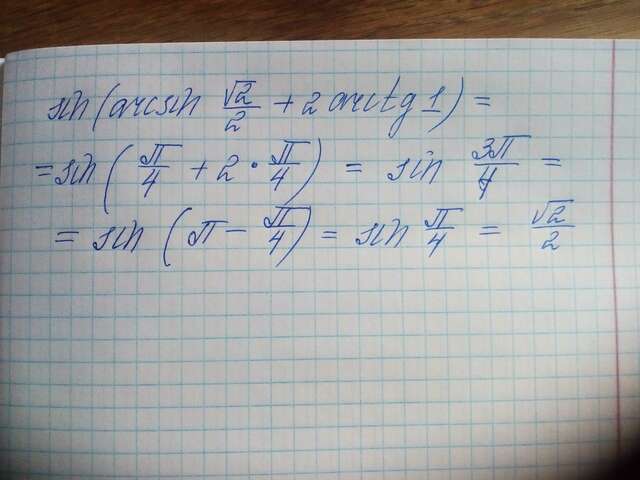 sin(arcsin √2/2 + 2 arctg 1) =
= sin(π/4 + 2 · π/4) = sin 3π/4 =
= sin(π − π/4) = sin π/4 = √2/2